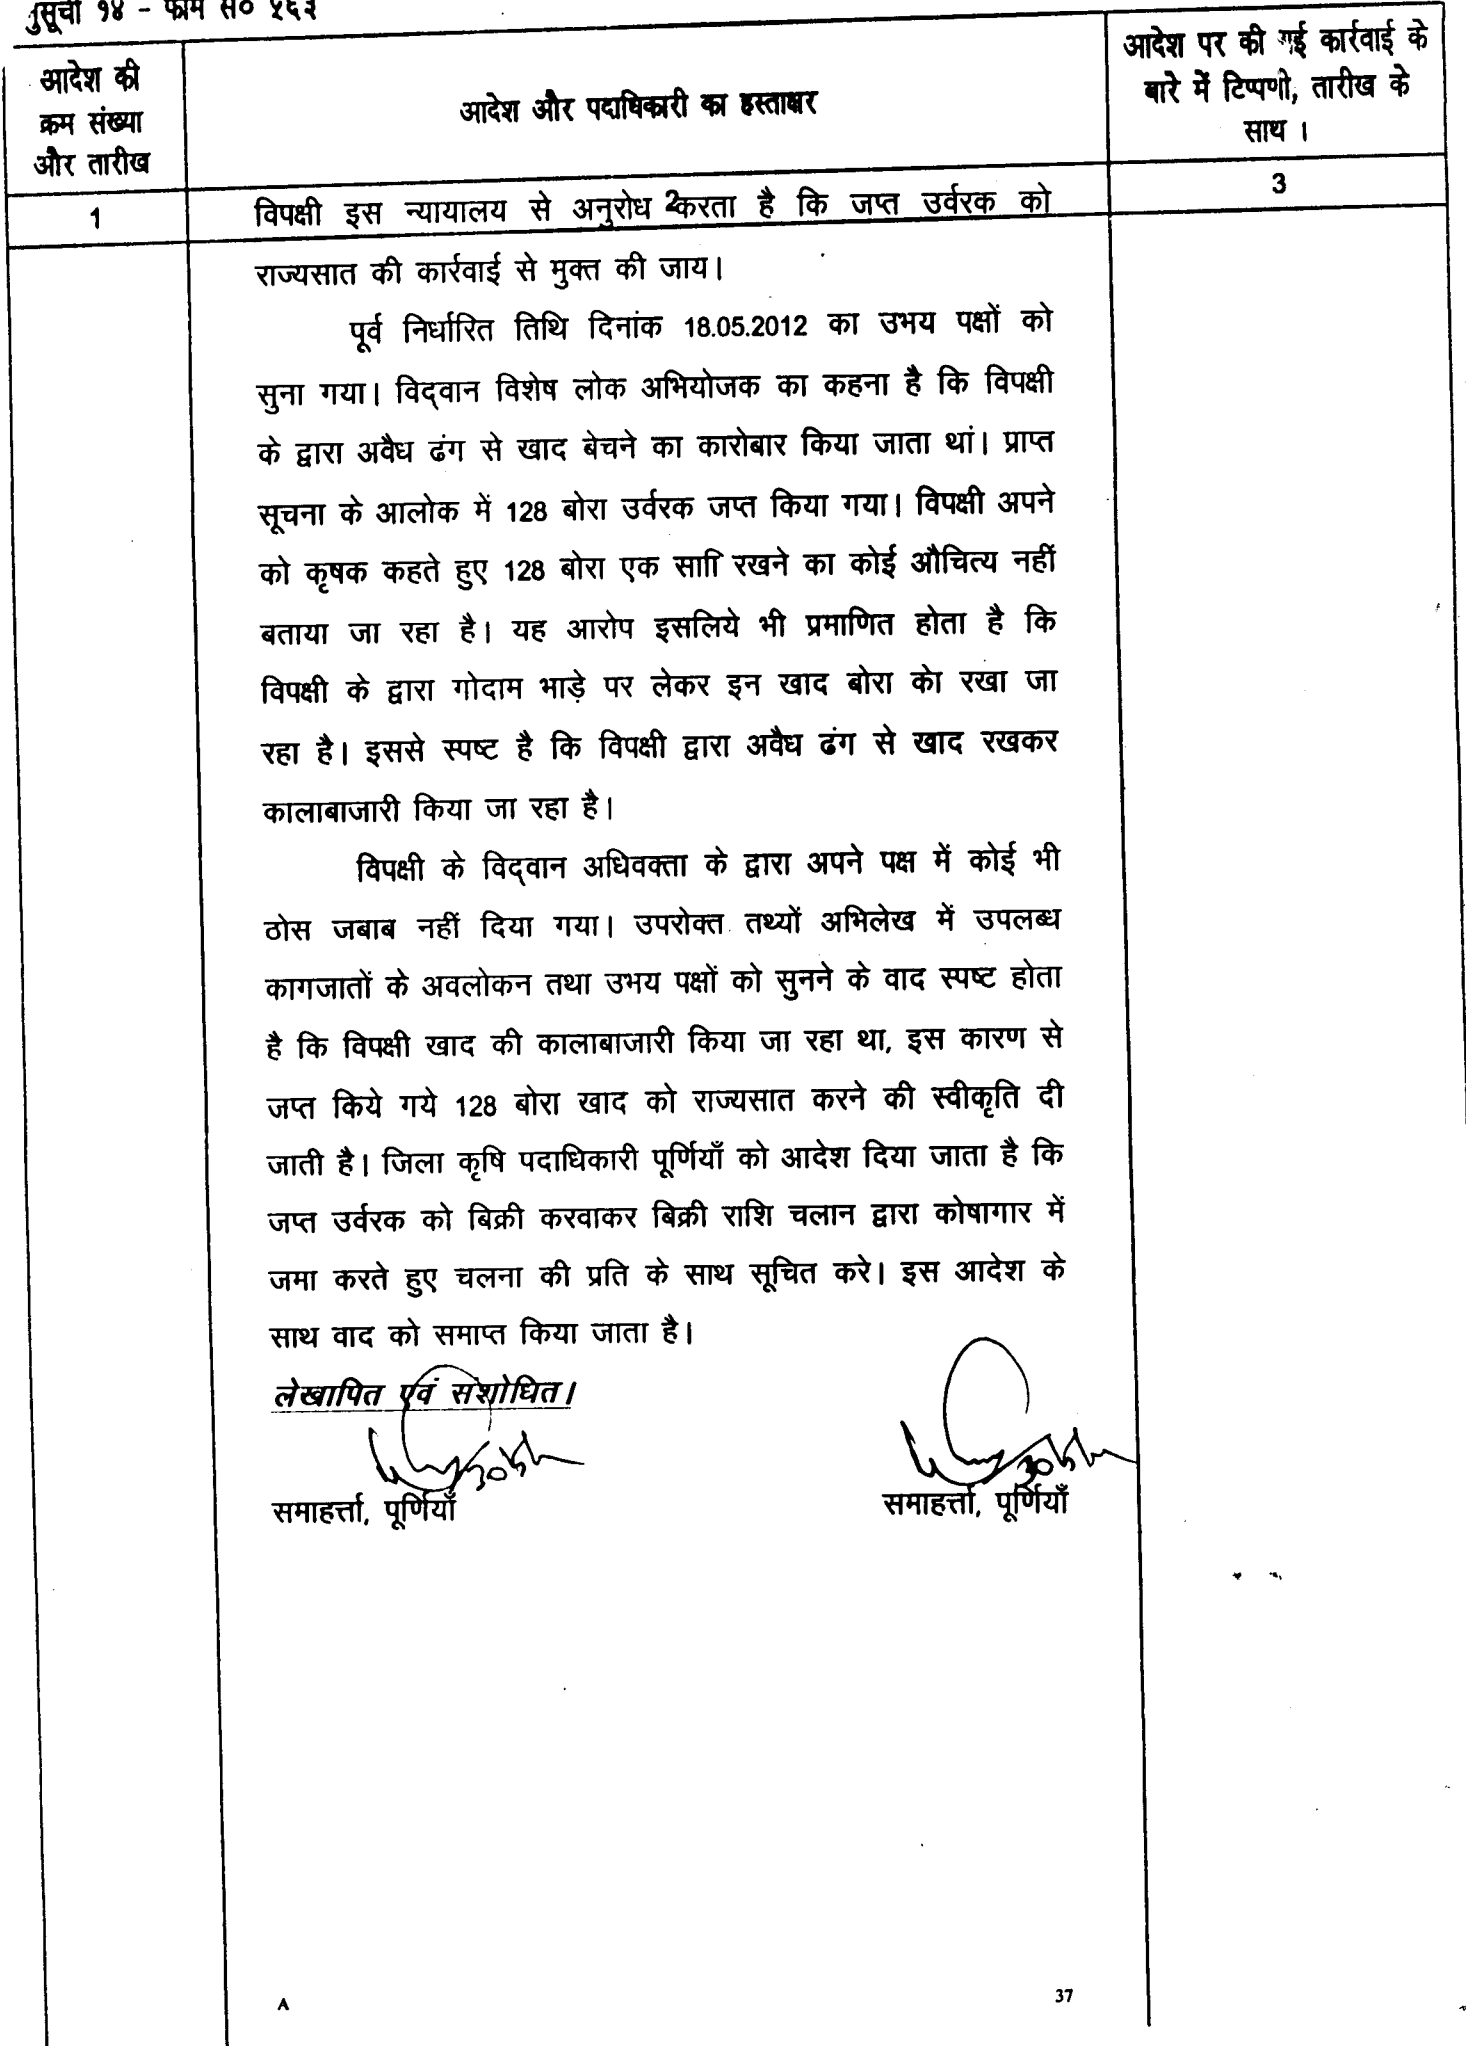 नुसूची १४ - फाम सं० ५६३
आदेश की
क्रम संख्या
और तारीख
आदेश और पदाधिकारी का हस्ताक्षर
आदेश पर की गई कार्रवाई के
बारे में टिप्पणी, तारीख के
साथ ।
1
2
3
विपक्षी इस न्यायालय से अनुरोध करता है कि जप्त उर्वरक को
राज्यसात की कार्रवाई से मुक्त की जाय।
पूर्व निर्धारित तिथि दिनांक 18.05.2012 का उभय पक्षों को
सुना गया। विद्वान विशेष लोक अभियोजक का कहना है कि विपक्षी
के द्वारा अवैध ढंग से खाद बेचने का कारोबार किया जाता थां। प्राप्त
सूचना के आलोक में 128 बोरा उर्वरक जप्त किया गया। विपक्षी अपने
को कृषक कहते हुए 128 बोरा एक सााि रखने का कोई औचित्य नहीं
बताया जा रहा है। यह आरोप इसलिये भी प्रमाणित होता है कि
विपक्षी के द्वारा गोदाम भाड़े पर लेकर इन खाद बोरा केा रखा जा
रहा है। इससे स्पष्ट है कि विपक्षी द्वारा अवैध ढंग से खाद रखकर
कालाबाजारी किया जा रहा है।
विपक्षी के विद्वान अधिवक्ता के द्वारा अपने पक्ष में कोई भी
ठोस जबाब नहीं दिया गया। उपरोक्त तथ्यों अभिलेख में उपलब्ध
कागजातों के अवलोकन तथा उभय पक्षों को सुनने के वाद स्पष्ट होता
है कि विपक्षी खाद की कालाबाजारी किया जा रहा था, इस कारण से
जप्त किये गये 128 बोरा खाद को राज्यसात करने की स्वीकृति दी
जाती है। जिला कृषि पदाधिकारी पूर्णियाँ को आदेश दिया जाता है कि
जप्त उर्वरक को बिक्री करवाकर बिक्री राशि चलान द्वारा कोषागार में
जमा करते हुए चलना की प्रति के साथ सूचित करे। इस आदेश के
साथ वाद को समाप्त किया जाता है।
लेखापित एवं संशोधित।
समाहर्त्ता, पूर्णियाँ
समाहर्त्ता, पूर्णियाँ
A
37